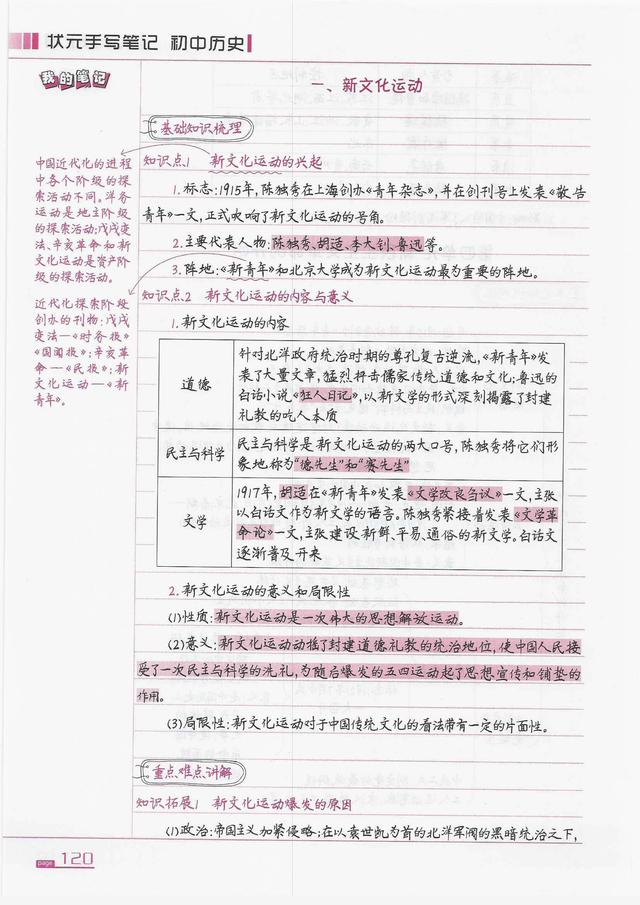 状元手写笔记 初中历史
我的笔记
一、新文化运动
基础知识梳理
中国近代化的进程
中各个阶级的探
索活动不同。洋务
运动是地主阶级
的探索活动;戊戌变
法、辛亥革命和新
文化运动是资产阶
级的探索活动。
近代化探索阶段
创办的刊物:戊戌
变法—《时务报》
《国闻报》;辛亥革
命—《民报》;新
文化运动—《新
青年》。
知识点1 新文化运动的兴起
1.标志:1915年,陈独秀在上海创办《青年杂志》,并在创刊号上发表《敬告
青年》一文,正式吹响了新文化运动的号角。
2.主要代表人物:陈独秀、胡适、李大钊、鲁迅等。
3.阵地:《新青年》和北京大学成为新文化运动最为重要的阵地。
知识点2 新文化运动的内容与意义
1.新文化运动的内容
道德
针对北洋政府统治时期的尊孔复古逆流,《新青年》发
表了大量文章,猛烈抨击儒家传统道德和文化;鲁迅的
白话小说《狂人日记》,以新文学的形式深刻揭露了封建
礼教的吃人本质
民主与科学
民主与科学是新文化运动的两大口号,陈独秀将它们形
象地称为“德先生”和“赛先生”
文学
1917年,胡适在《新青年》发表《文学改良刍议》一文,主张
以白话文作为新文学的语言。陈独秀紧接着发表《文学革
命论》一文,主张建设新鲜、平易、通俗的新文学。白话文
逐渐普及开来
2.新文化运动的意义和局限性
(1)性质:新文化运动是一次伟大的思想解放运动。
(2)意义:新文化运动动摇了封建道德礼教的统治地位,使中国人民接
受了一次民主与科学的洗礼,为随后爆发的五四运动起了思想宣传和铺垫的
作用。
(3)局限性:新文化运动对于中国传统文化的看法带有一定的片面性。
重点难点讲解
知识拓展1 新文化运动爆发的原因
(1)政治:帝国主义加紧侵略;在以袁世凯为首的北洋军阀的黑暗统治之下,
page 120